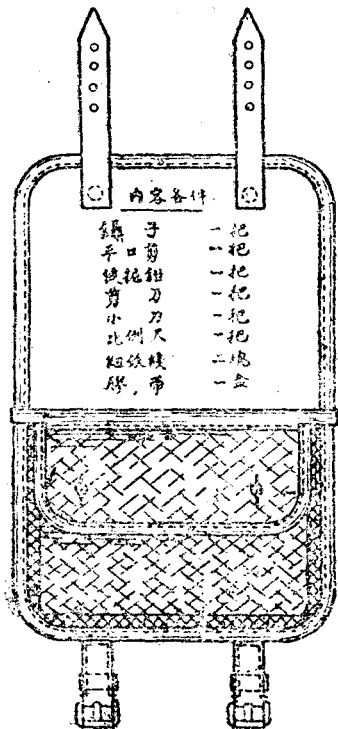 内容各件
鑷子 一把
平口剪 一把
钳 一把
剪刀 一把
小刀 一把
比例尺 一把
二塊
膠,帶 一盒